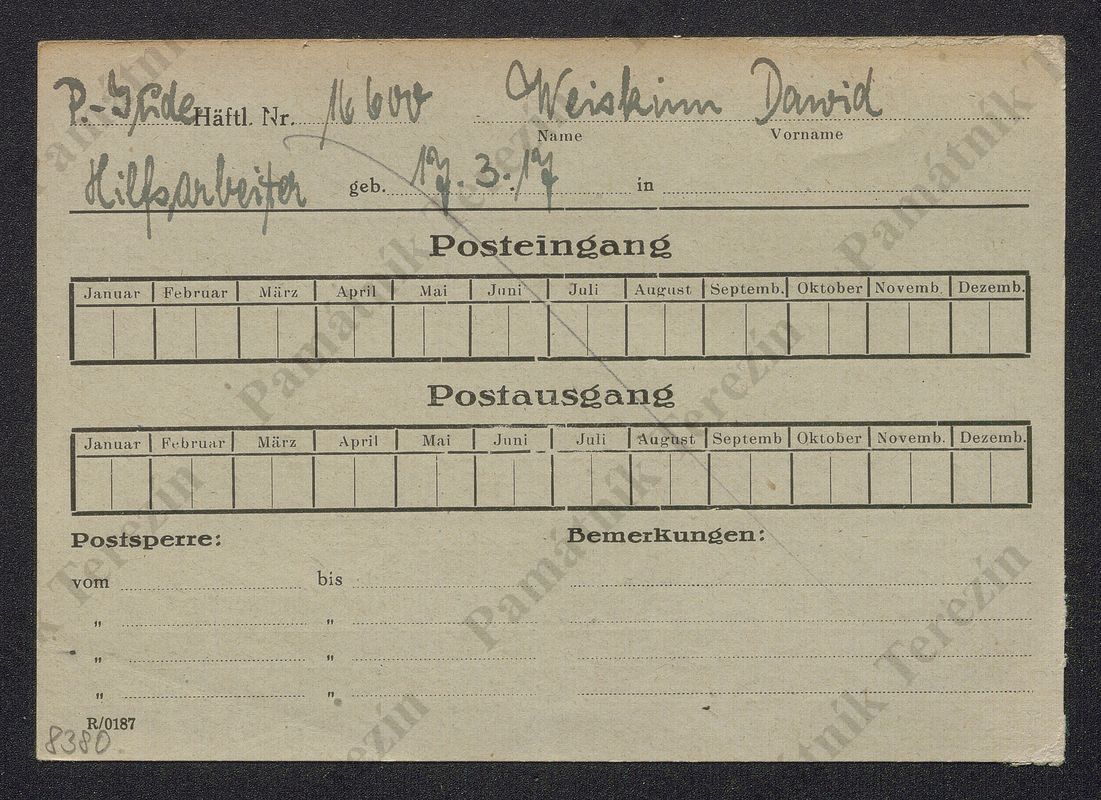 P.-Jude Häftl. Nr. 16600 Weiskinn Dawid
Name Vorname
Hilfsarbeiter geb. 17.3.17 in
Posteingang
Januar Februar März April Mai Juni Juli August Septemb. Oktober Novemb. Dezemb.
Postausgang
Januar Februar März April Mai Juni Juli August Septemb Oktober Novemb. Dezemb.
Postsperre: Bemerkungen:
vom bis
" "
" "
" "
R/0187
8380
Památník Terezín